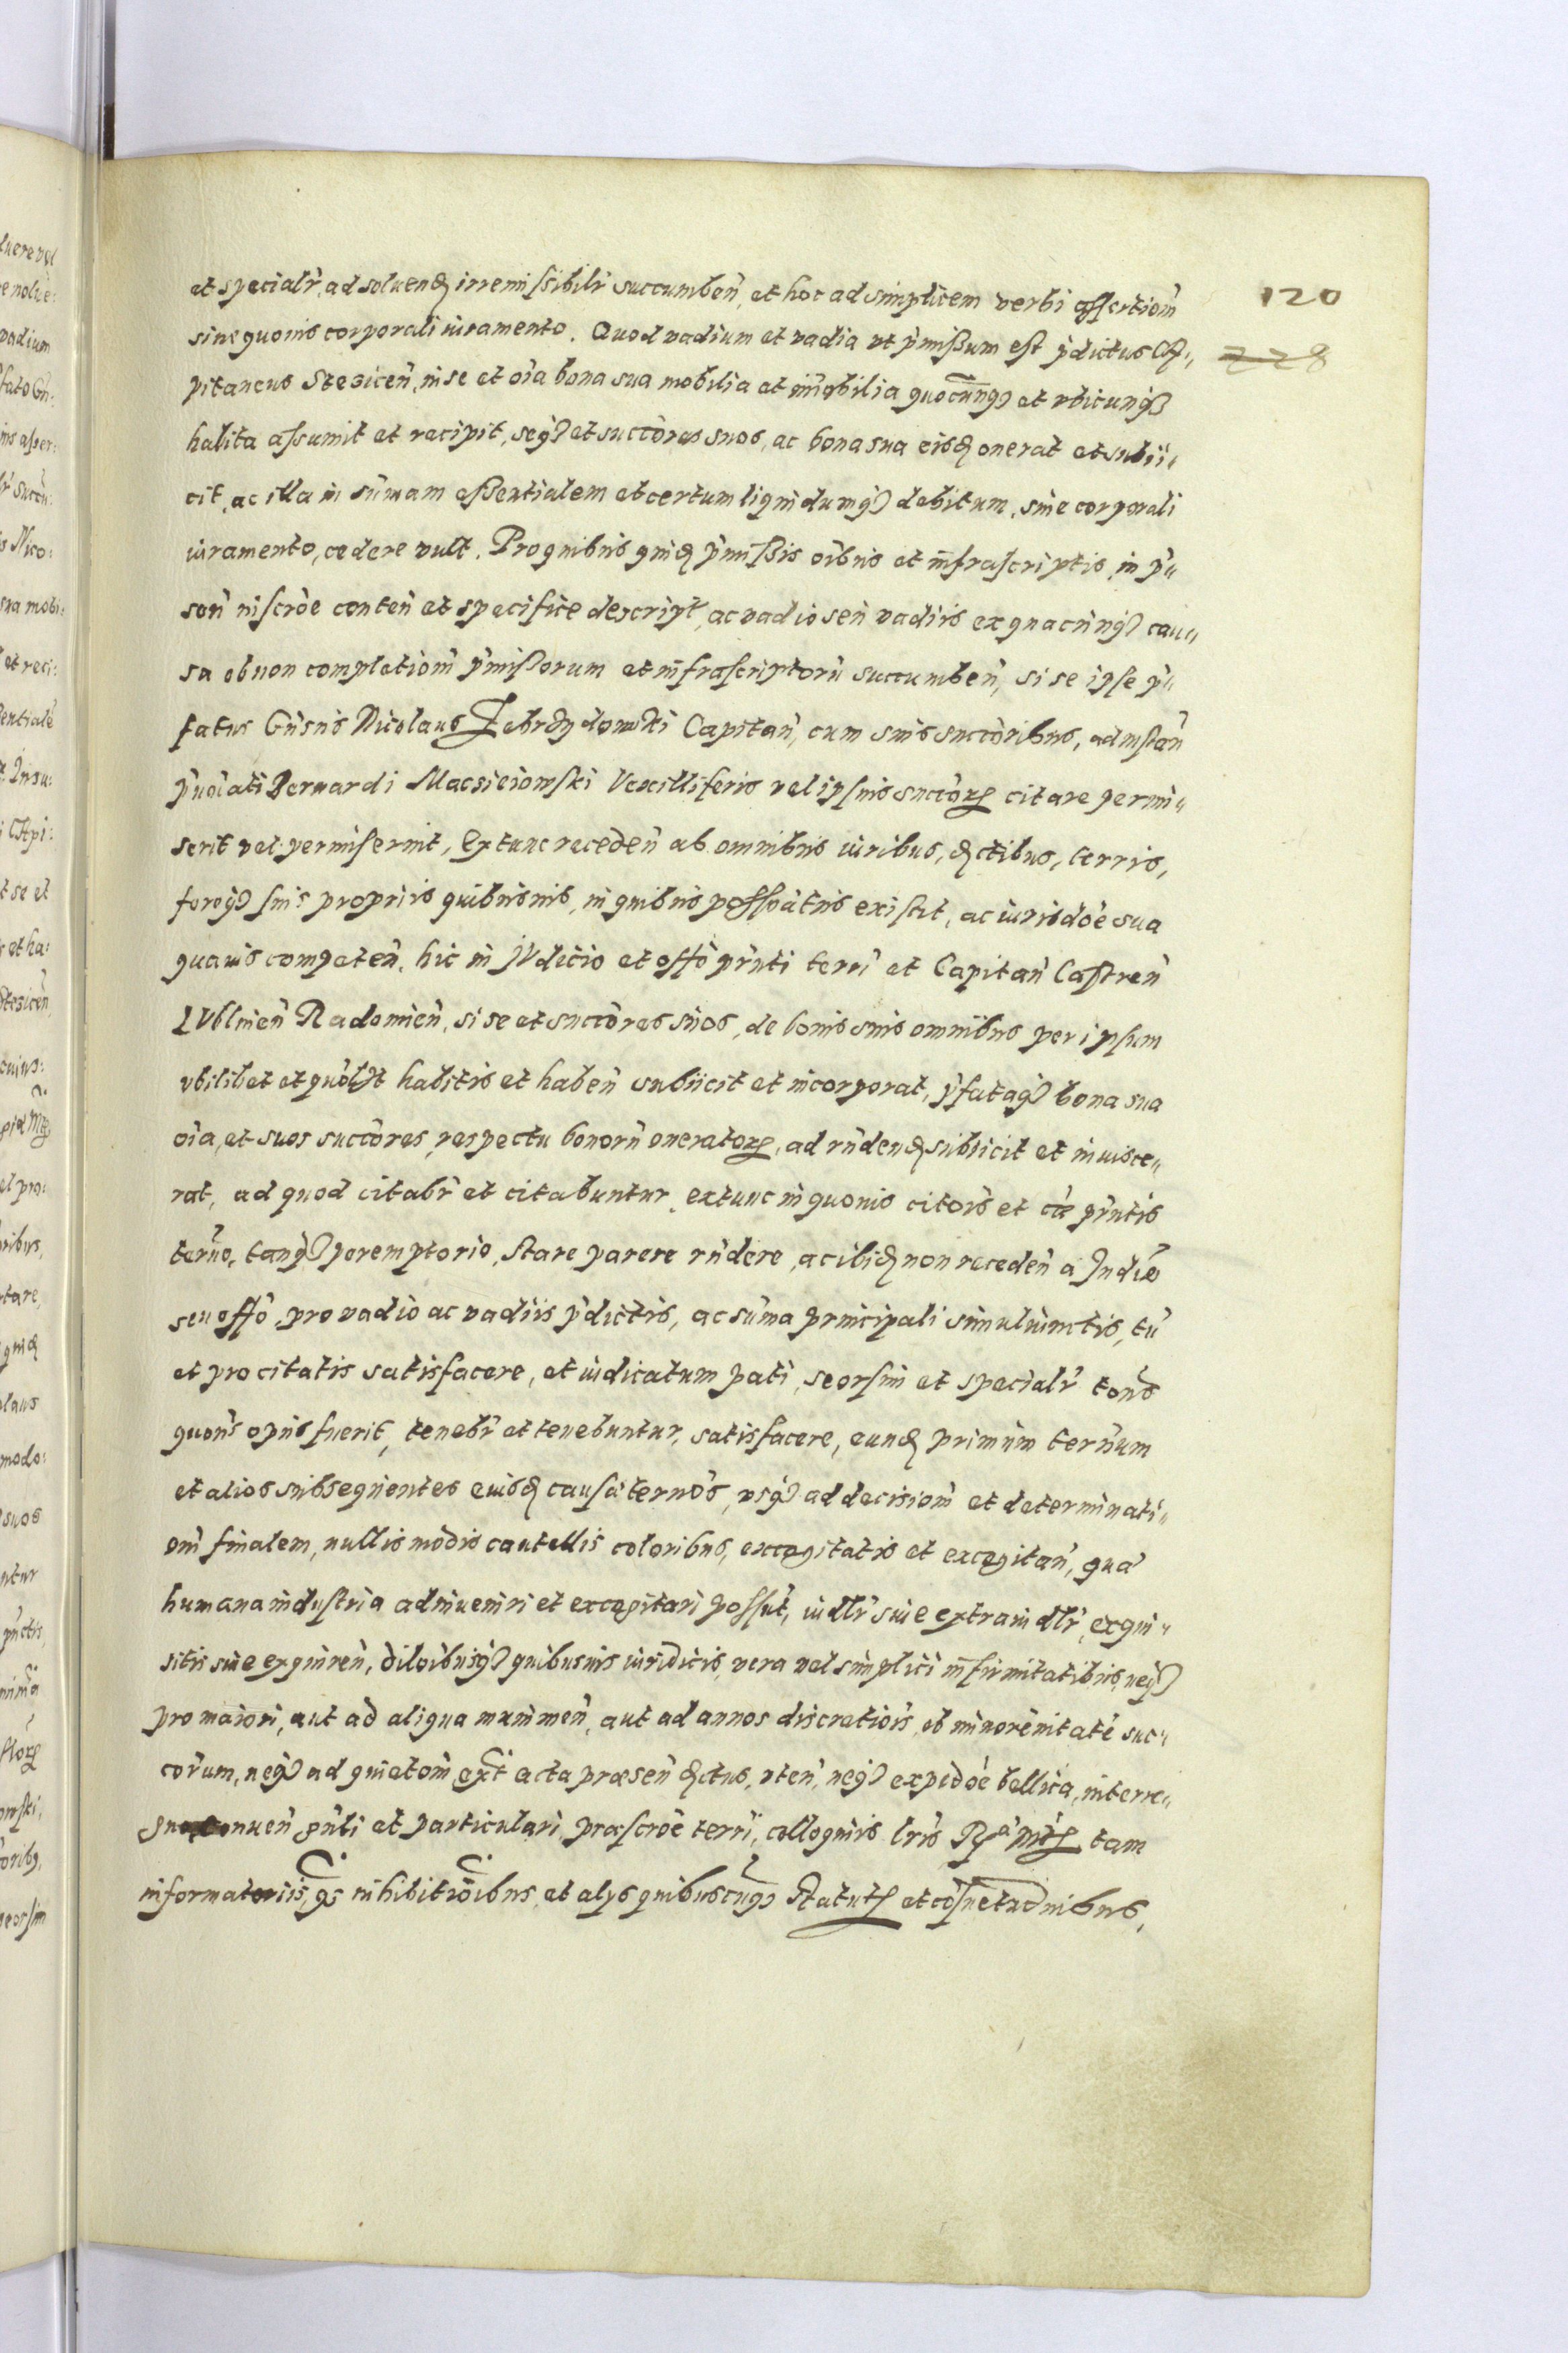 120
228
et specialr̃, ad soluenđ irremissibilr̃ succumbeñ, et hoc ad simplicem verbi assertioñ
sine quouis corporali iuramento. Quod vadium et vadia vt p̃missum est p̃dictus Ca„
pitaneus Steziceñ, in se et oĩa bona sua mobilia et im̃obilia quocũnq3 et vbicunq3
habita assumit et recipit, seq3 et succõres suos, ac bona sua eisđ onerat et subii„
cit, ac illa in sum̃am essentialem et certum liquidumq3 debitum, sine corporali
iuramento, cedere vult. Pro quibus quiđ p̃missis oĩbus et infrascriptis, in p̃„
señ inscrõe conteñ et specifice descript, ac vadio seu vadiis ex quacũnq3 cau„
sa ob non completioñ p̃missorum et infrascriptorũ succumbeñ, si se ipse p̃„
fatus Gñsus Nicolaus Zebrzydowski Capitañ, cum suis succõribus, ad instañ
p̃noĩati Bernardi Macsieiowski Vexilliferis vel ipsius succõrƺ citare permi„
serit vel permiserint, Extunc recedeñ ab omnibus iuribus, đctibus, terris,
foroq3 suis propriis quibusuis, in quibus possõatus existit, ac iurisdõe sua
quauis competeñ, hic in Judicio et offõ p̃nti terrĩ et Capitañ Castreñ
Lublineñ Radomieñ, si se et succõres suos, de bonis suis omnibus per ipsum
vbilibet et quõlt habitis et habeñ subiicit et incorporat, p̃fataq3 bona sua
oĩa, et suos succõres, respectu bonorũ oneratorƺ, ad rñdenđ subiicit et inuisce„
rat, ad quod citabr̃ et citabuntur, extunc in quouis citõis et cæ p̃ntis
termo, tanq3 peremptorio, stare parere rñdere, ac ibiđ non recedeñ a Judiõ
seu offõ, pro vadio ac vadiis p̃dictis, ac sum̃a principali simul iunctis, tũ
et pro citatis satisfacere, et iudicatum pati, seorsim et specialr̃ toñs
quoñs opus fuerit, tenebr̃ et tenebuntur, satisfacere, eunđ primum term̃um
et alios subsequentes eiusđ causæ term̃os, vsq3 ad decisioñ et determinati„
oñ finalem, nullis modis cautellis coloribus, excogitatis et excogitañ, quæ
humana industria adinueniri et excogitari possũt, iudlr̃ siue extraiudlr̃, exqui„
sitis siue exquireñ, diloĩbusq3 quibusuis iuridicis, vera vel simplici infirmitatibus, neq3
pro maiori, aut ad aliqua munimeñ, aut ad annos discretiõis, ob minorenitatẽ suc„
corũm, neq3 ad quietoñ ext acta præseñ đctus, vteñ, neq3 expedõe bellica, interre„
gno, conueñ gñli et particulari, præscrõe terrĩ, colloquiis lris R͠ M͠ tam
informatoriis, q̃ inhibitiõibus, et alys quibuscũnq3 Statutƺ et cõsuetudinibus,